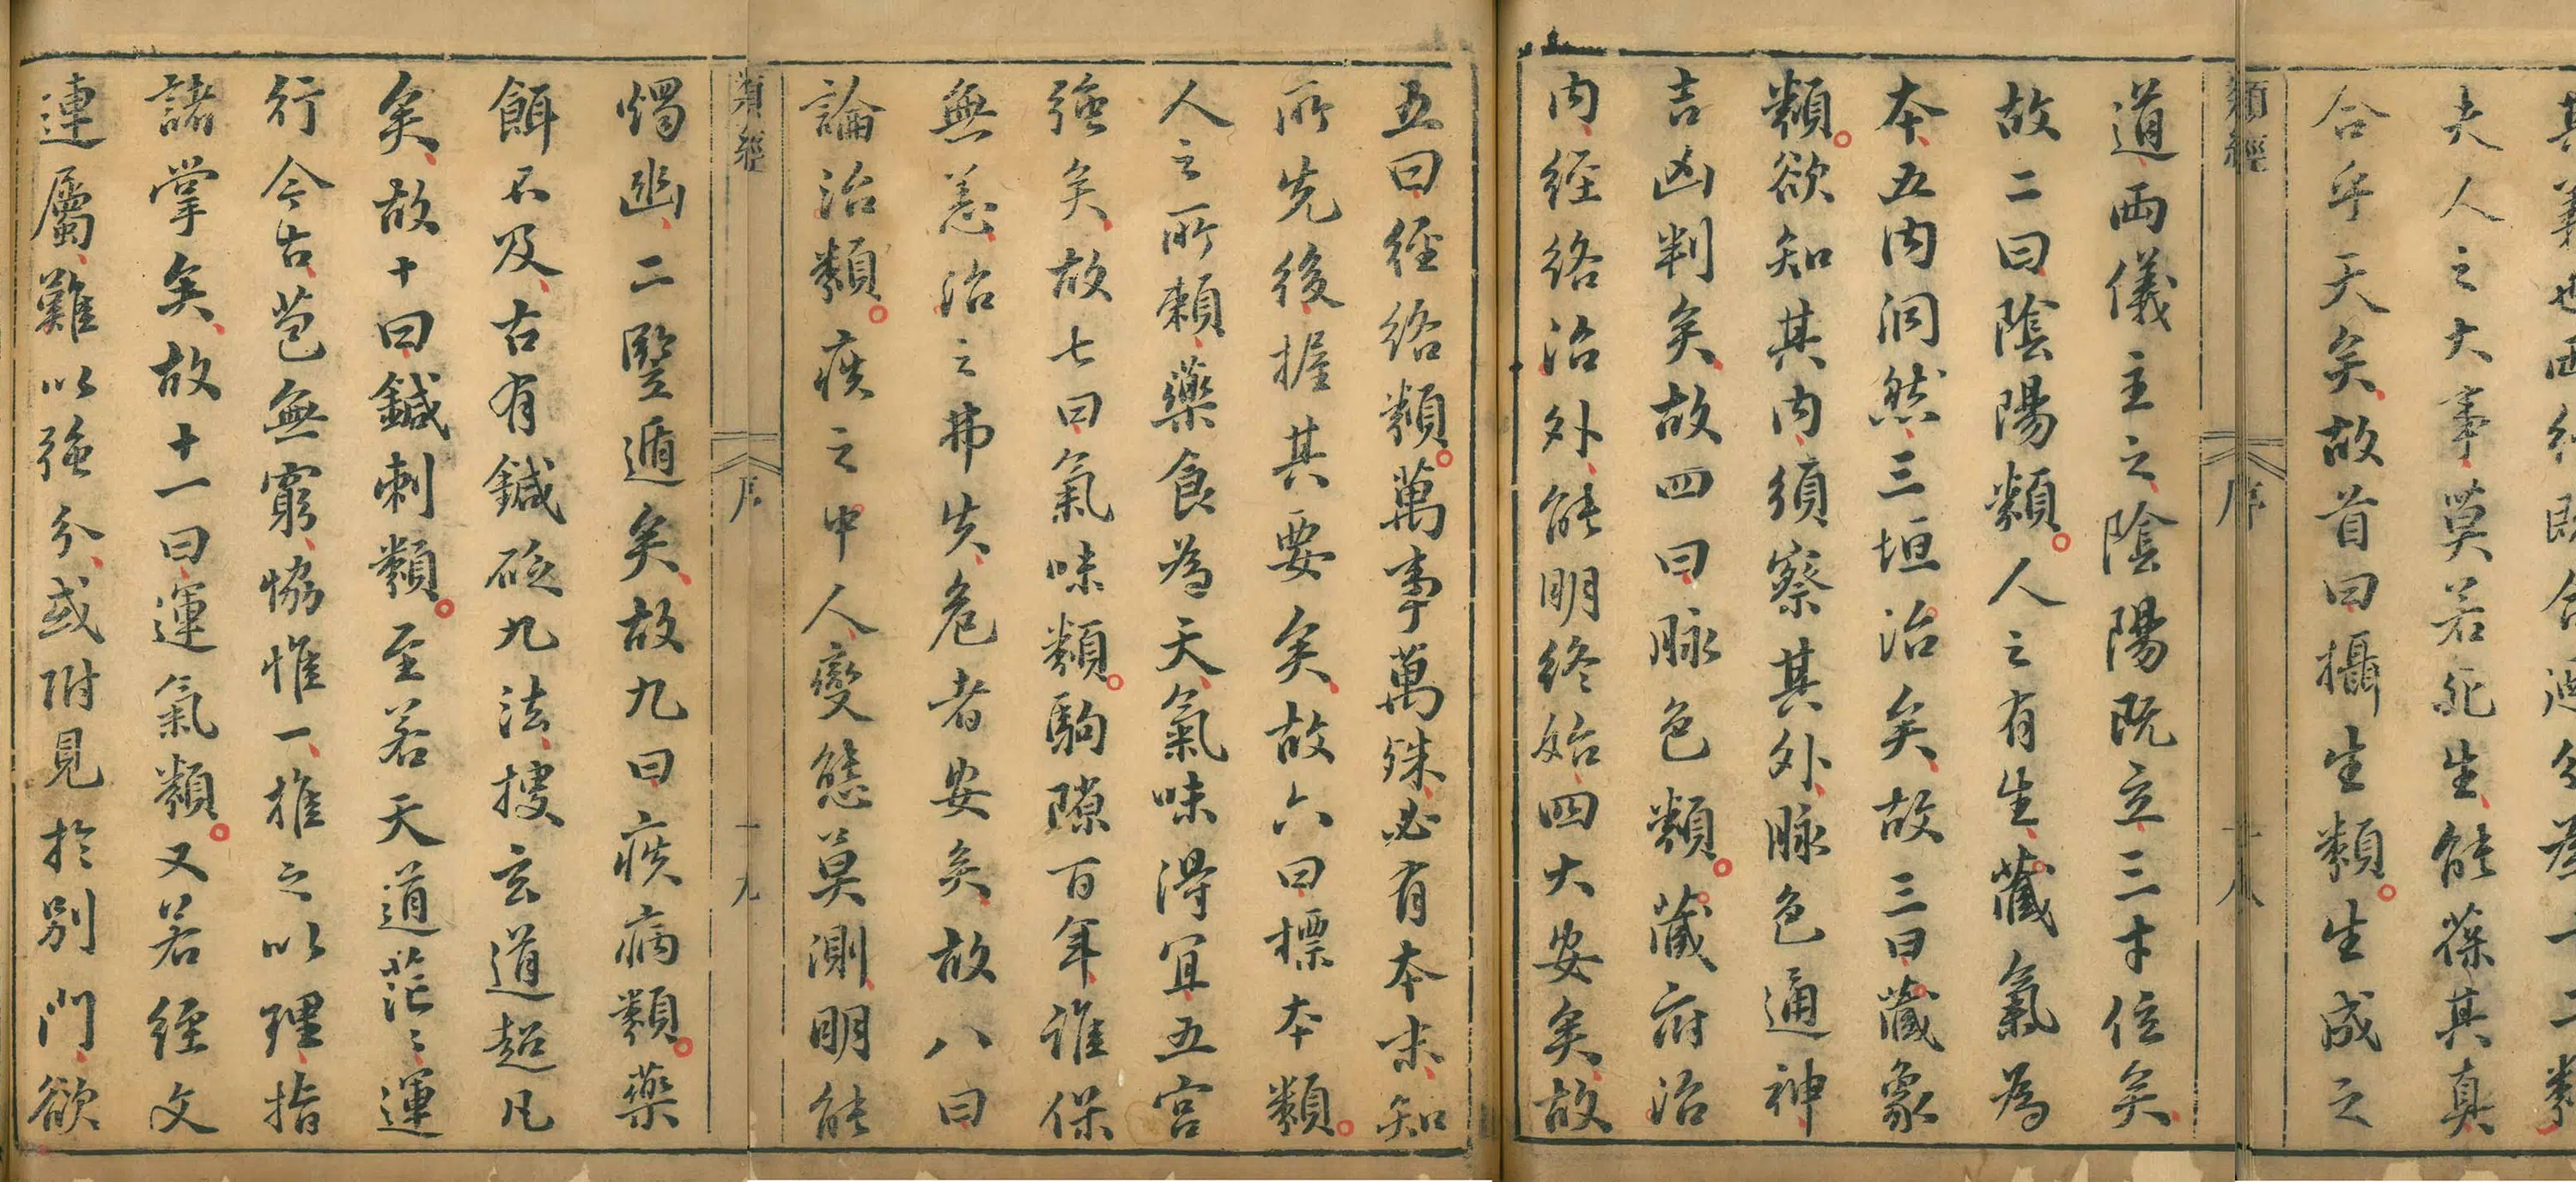 其義也兩經既合迺分為十二類
夫人之大事莫若死生能葆其真
合乎天矣故首曰攝生類生成之
類經
序
十八
道兩儀主之陰陽既立三才位矣
故二曰陰陽類人之有生藏氣為
本五內洞然三垣治矣故三曰藏象
類欲知其內須察其外脉色通神
吉凶判矣故四曰脉色類藏府治
內経絡治外能明終始四大安矣故
五曰経絡類萬事萬殊必有本末知
所先後握其要矣故六曰標本類
人之所賴藥食為天氣味得宜五宮
強矣故七曰氣味類駒隙百年誰保
無恙治之弗失危者安矣故八曰
論治類疾之中人變態莫測明能
類經
序
十九
燭幽二竪遁矣故九曰疾病類藥
餌不及古有鍼砭九法搜玄道超凡
矣故十曰鍼刺類至若天道茫〻運
行今古苞無窮協惟一推之以理指
諸掌矣故十一曰運氣類又若経文
連屬難以強分或附見於別門欲